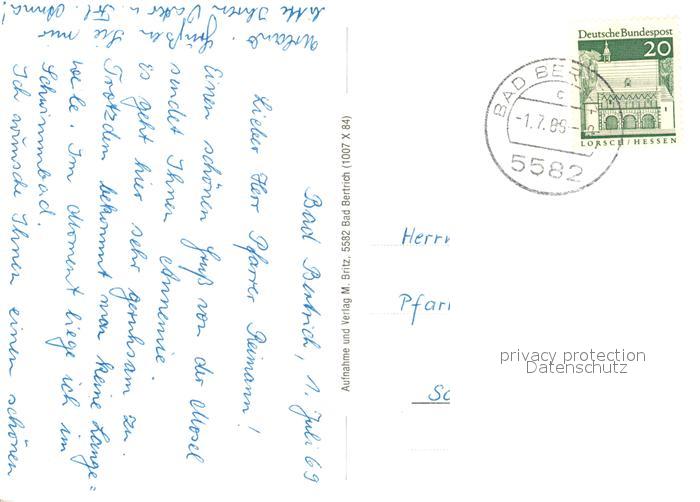 Bad Bertrich, 1. Juli 69
Lieber Herr Pfarrer Reimann!
Einen schönen Gruß von der Mosel
sendet Ihnen Annemie.
Es geht hier sehr geruhsam zu.
Trotzdem bekommt man keine Lange=
weile. Im Moment liege ich im
Schwimmbad.
Ich wünsche Ihnen einen schönen
Urlaub. Grüßen Sie mir
bitte Ihren Vater u. Frl. Anna!
Aufnahme und Verlag M. Britz, 5582 Bad Bertrich (1007 X 84)
Deutsche Bundespost
20
LORSCH/HESSEN
BAD BERT
c
-1.7.69-
5582
Herrn
Pfarr
Sc
privacy protection
Datenschutz